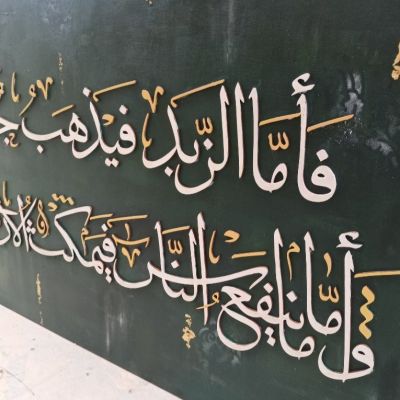 فأمّا الزَّبد فيذهبُ
وأمّا ما ينفع النَّاس فيمكث